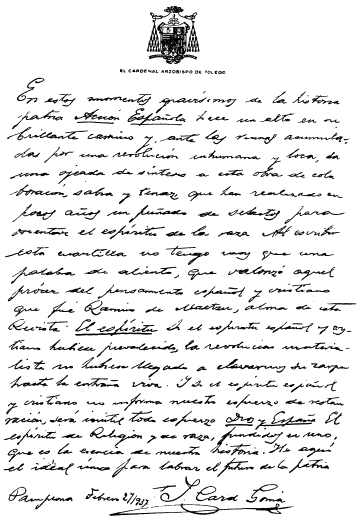 EL CARDENAL ARZOBISPO DE TOLEDO
En estos momentos gravísimos de la historia
patria Acción Española hace un alto en su
brillante camino y, ante las ruinas acumula-
das por una revolución inhumana y loca, da
una ojeada de síntesis a esta obra de cola
boración, sabia y tenaz que han realizado en
pocos años un puñado de selectos para
orientar el espíritu de la raza. Al escribir
esta cuartilla no tengo más que una
palabra de aliento, que valorizó aquel
prócer del pensamiento español y cristiano
que fué Ramiro de Maeztu, alma de esta
Revista: El espíritu. Si el espíritu español y cris
tiano hubiese prevalecido, la revolución materia-
lista no hubiera llegado a clavarnos su zarpa
hasta la entraña viva. Y si el espíritu español
y cristiano no informa nuestro esfuerzo de restau
ración, será inútil todo esfuerzo. Dios y España. El
espíritu de Religión y de raza, fundidos en uno,
que es la esencia de nuestra historia. He aquí
el ideal único para labrar el futuro de la patria
Pamplona Febrero 27/937 I. Card Gomá